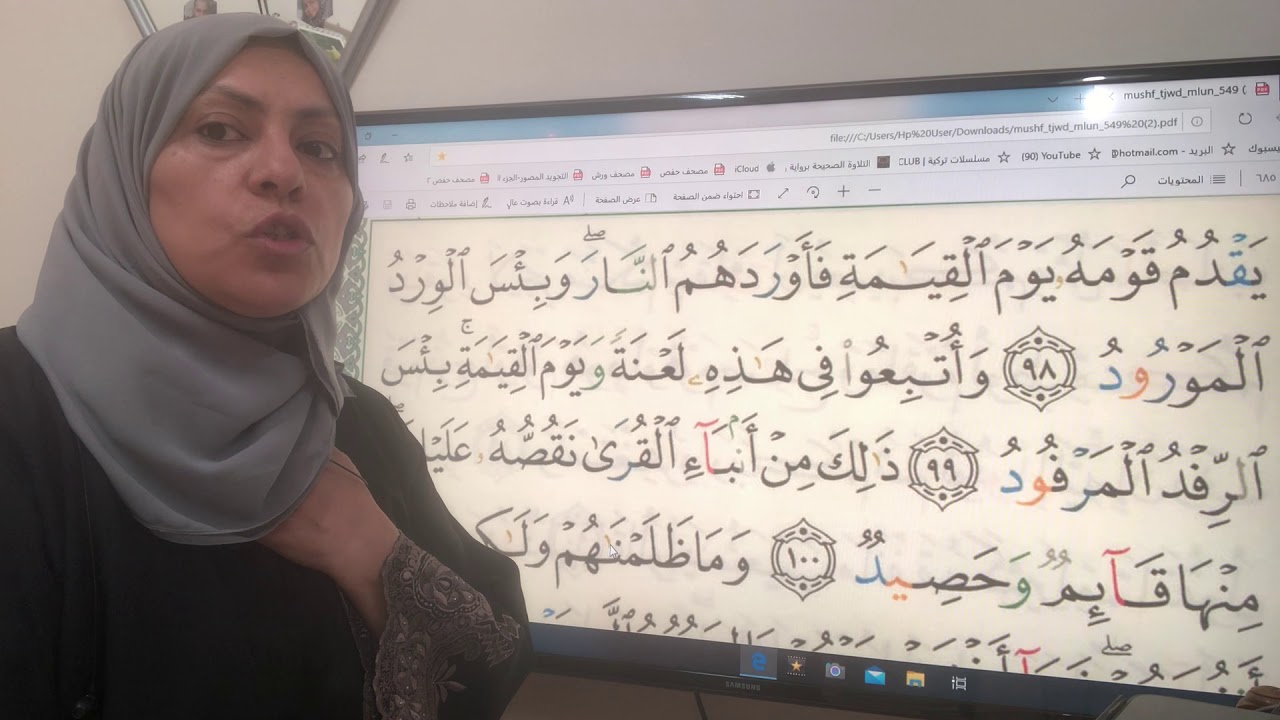 mushf_tjwd_mlun_549 (
file:///C:/Users/Hp%20User/Downloads/mushf_tjwd_mlun_549%20(2).pdf
يسبوك
البريد - hotmail.com
(90) YouTube
مسلسلات تركية | CLUB
التلاوة الصحيحة برواية
iCloud
مصحف حفص
مصحف ورش
التجويد المصور-الجزء ١١
مصحف حفص ٢
٦٨٥
المحتويات
احتواء ضمن الصفحة
عرض الصفحة
قراءة بصوت عالي
إضافة ملاحظات
يَقْدُمُ قَوْمَهُۥ يَوْمَ ٱلْقِيَـٰمَةِ فَأَوْرَدَهُمُ ٱلنَّارَ ۖ وَبِئْسَ ٱلْوِرْدُ
ٱلْمَوْرُودُ ٩٨ وَأُتْبِعُوا۟ فِى هَـٰذِهِۦ لَعْنَةً وَيَوْمَ ٱلْقِيَـٰمَةِ ۚ بِئْسَ
ٱلرِّفْدُ ٱلْمَرْفُودُ ٩٩ ذَٰلِكَ مِنْ أَنۢبَآءِ ٱلْقُرَىٰ نَقُصُّهُۥ
مِنْهَا قَآئِمٌ وَحَصِيدٌ ١٠٠ وَمَا ظَلَمْنَـٰهُمْ
SAMSUNG